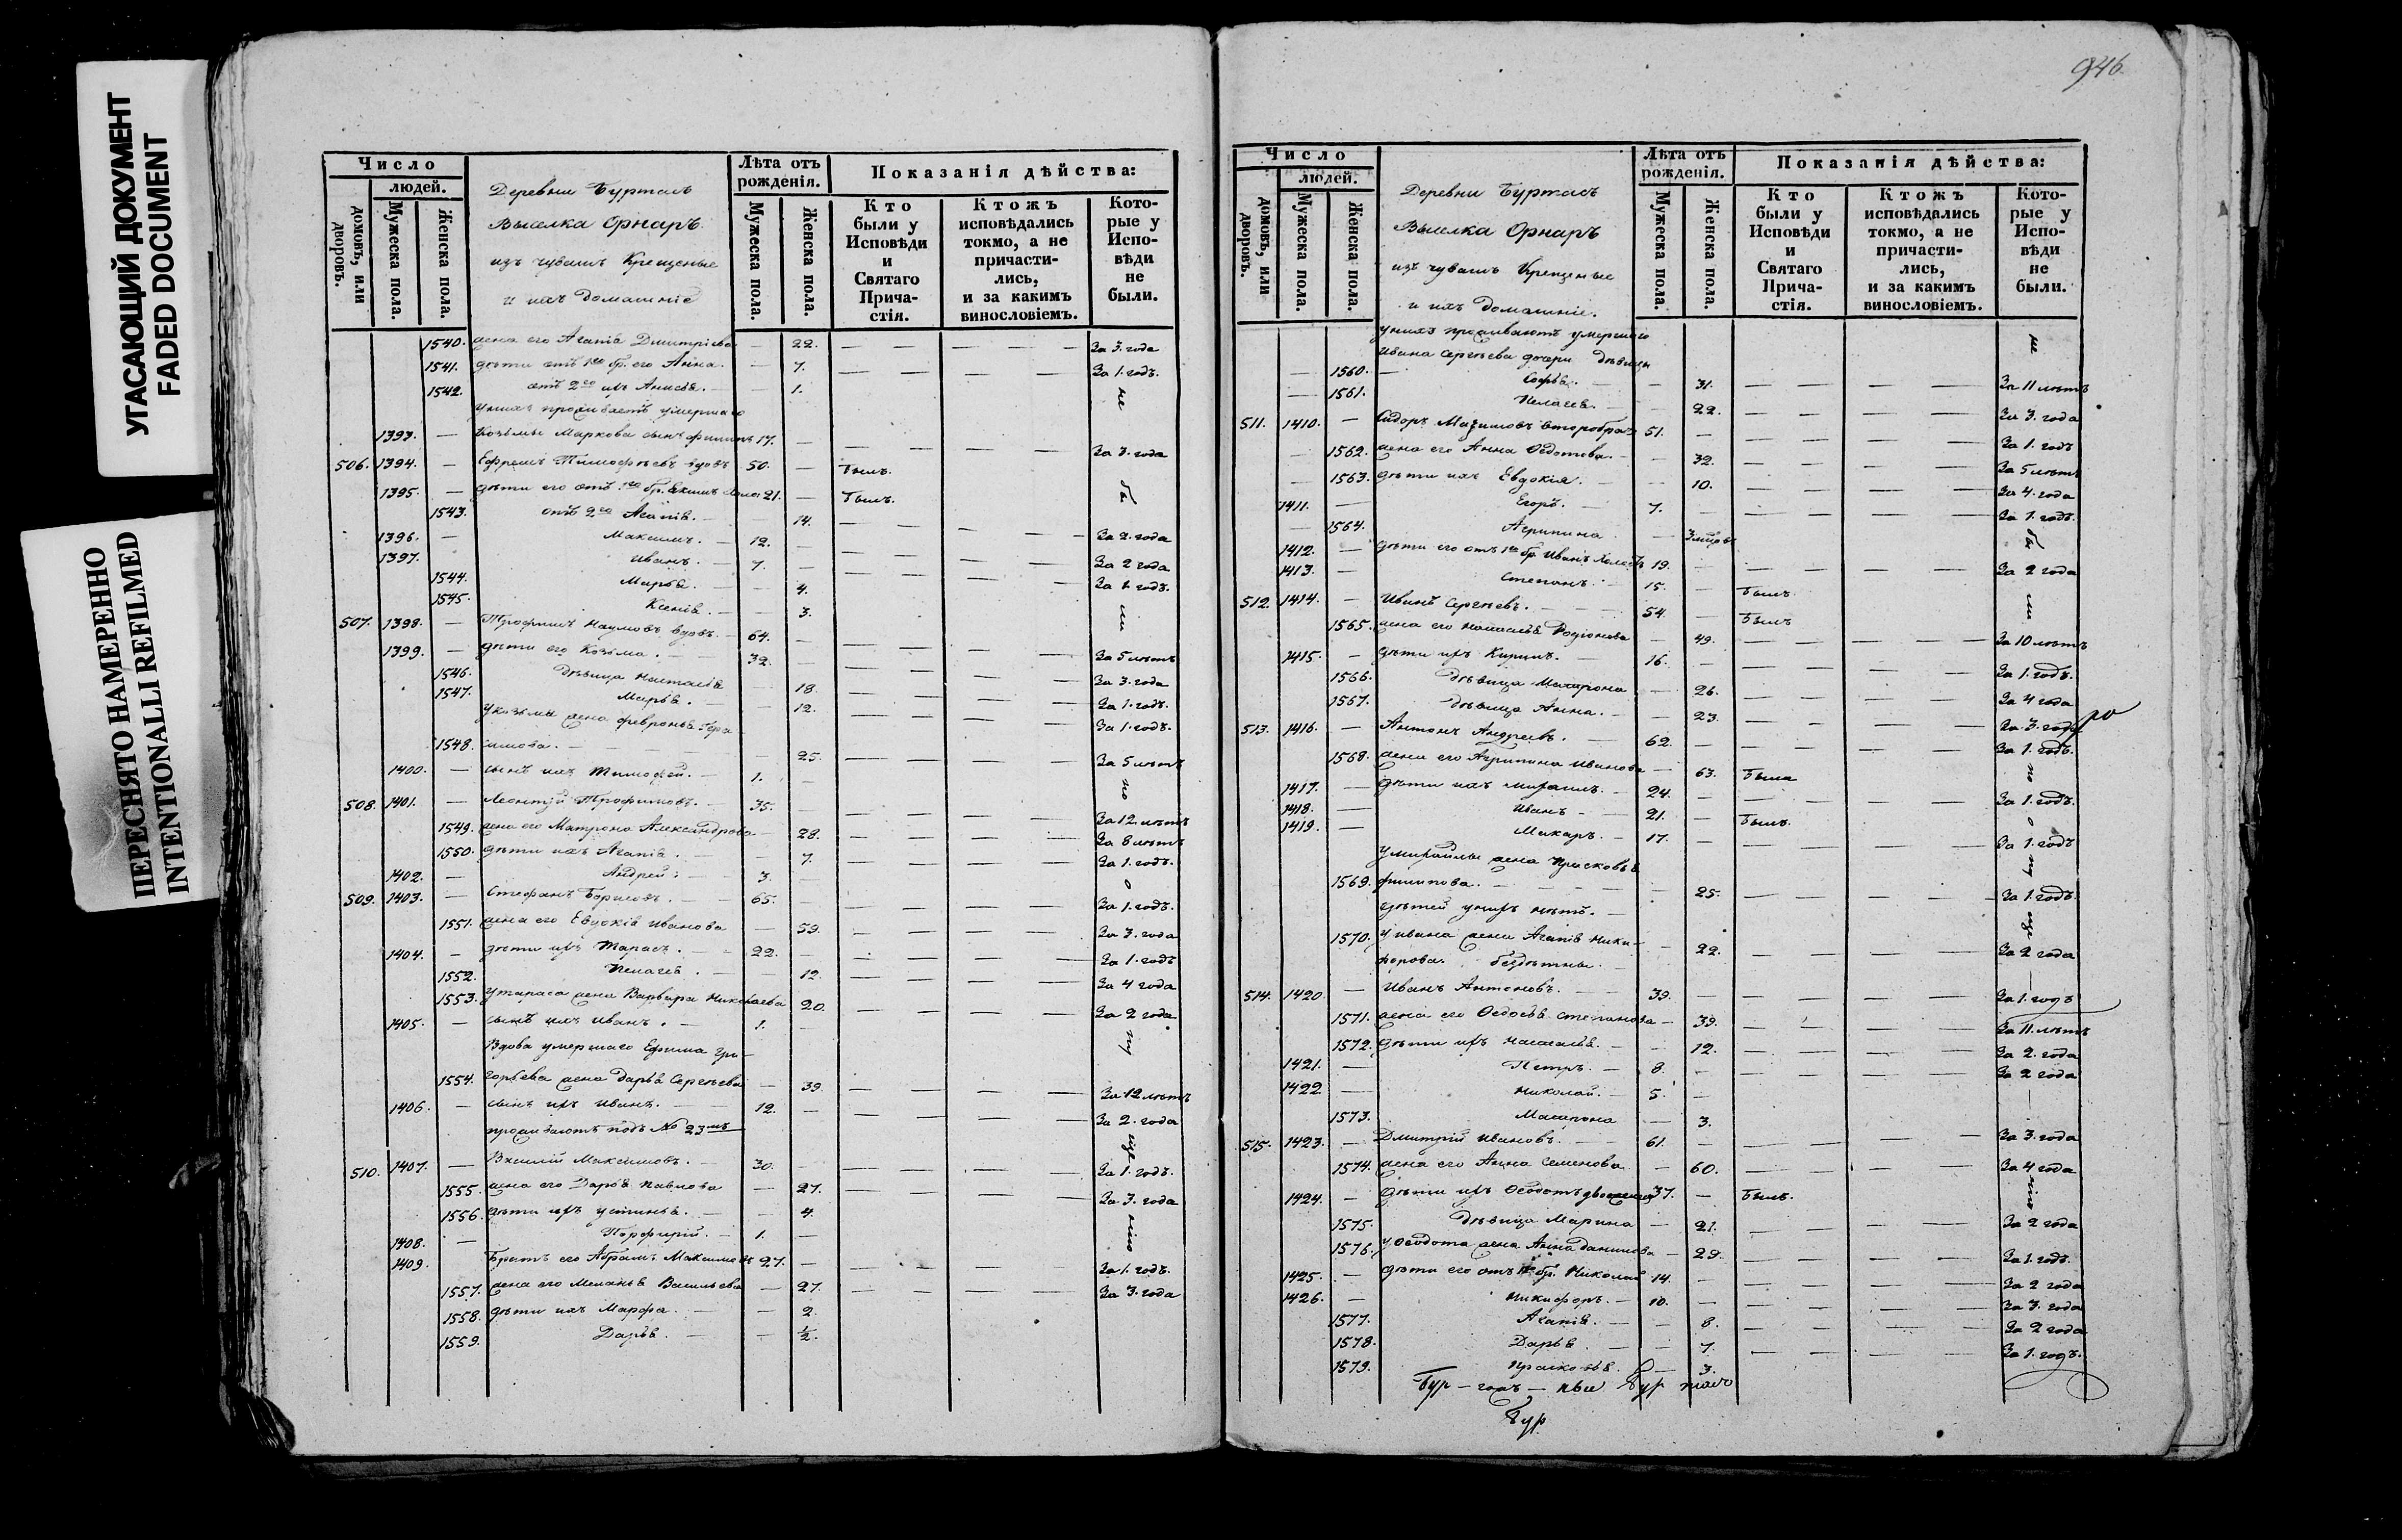 УГАСАЮЩИЙ ДОКУМЕНТ
FADED DOCUMENT
ПЕРЕСНЯТО НАМЕРЕННО
INTENTIONALLI REFILMED
Число
людей.
домовъ, или дворовъ.
Мужеска пола.
Женска пола.
Деревни Буртасъ
Выселка Орнаръ
изъ чувашъ Крещеные
и ихъ домашніе
Лѣта отъ рожденія.
Мужеска пола.
Женска пола.
Показанія дѣйства:
Кто были у Исповѣди и Святаго Причастія.
Ктожъ исповѣдались токмо, а не причастились, и за какимъ винословіемъ.
Которые у Исповѣди не были.
1540. жена его Агапія Дмитріева — 22. — — — За 3. года
1541. дѣти отъ 1го бр. его Анна. — 7. — — — За 1. годъ.
1542. отъ 2го ихъ Анисья. — 1.
у нихъ проживаетъ умершаго
1393. — Козьмы Маркова сынъ Филипъ 17. — — — За 3. года
506. 1394. — Ефремъ Тимофѣевъ вдовъ 50. — Былъ.
1395. — дѣти его отъ 1го бр. 21. — Былъ.
1543. отъ 2го Агапія. — 14. — — — За 2. года
1396. — Максимъ. — 12. — — — За 2 года
1397. Иванъ. — 7. — — — За 1 годъ.
1544. Марья. — 4.
1545. Ксенія. — 3.
507. 1398. — Трофимъ Наумовъ вдовъ. — 64. — — — За 5 лѣтъ
1399. — дѣти его Козьма. — 32. — — — За 3. года
1546. дѣвица Наталія — 18. — — — За 1. годъ.
1547. Марья. — 12. — — — За 1. годъ.
у Козьмы жена Февронья Гера-
1548. симова. — 25. — — — За 5 лѣтъ
1400. — сынъ ихъ Тимофей. — 1. —
508. 1401. — Леонтій Трофимовъ. — 35. — — — За 12 лѣтъ
1549. жена его Матрона Александрова — 28. — — — За 8 лѣтъ
1550. дѣти ихъ Агапія. — 7. — — — За 1. годъ.
1402. — Андрей. — 3. —
509. 1403. — Стефанъ Борисовъ. — 65. — — — За 1. годъ.
1551. жена его Евдокія Иванова — 59. — — — За 3. года
1404. — дѣти ихъ Тарасъ. — 22. — — — За 1. годъ
1552. Пелагея. — 12. — — — За 4 года
1553. у Тараса жена Варвара Николаева 20. — — — За 2 года
1405. — сынъ ихъ Иванъ. — 1.
Вдова умершаго Ефима Гри-
1554. горьева жена Дарья Сергѣева — 39. — — — За 12 лѣтъ
1406. — сынъ ихъ Иванъ. — 12. — — — За 2. года
проживаютъ подъ № 23мъ
510. 1407. — Василій Максимовъ. — 30. — — — За 1. годъ.
1555. жена его Дарья Павлова — 27. — — — За 3. года
1556. дѣти ихъ Устинья. — 4.
1408. — Порфирій. — 1. —
1409. Братъ его Абрамъ Максимовъ 27. — — — За 1. годъ.
1557. жена его Меланья Васильева — 27. — — — За 3. года
1558. дѣти ихъ Марфа. — 2.
1559. Дарья. — ½.
946
Число
людей.
домовъ, или дворовъ.
Мужеска пола.
Женска пола.
Деревни Буртасъ
Выселка Орнаръ
изъ чувашъ Крещеные
и ихъ домашніе.
Лѣта отъ рожденія.
Мужеска пола.
Женска пола.
Показанія дѣйства:
Кто были у Исповѣди и Святаго Причастія.
Ктожъ исповѣдались токмо, а не причастились, и за какимъ винословіемъ.
Которые у Исповѣди не были.
у нихъ проживаютъ умершаго
Ивана Сергѣева дочери дѣвицы
1560. Софья. — 31. — — — За 11 лѣтъ
1561. Пелагея. — 22. — — — За 3. года
511. 1410. — Сидоръ Максимовъ второбрач. 51. — — — За 1. годъ
1562. жена его Анна Ѳедотова. — 32. — — — За 5 лѣтъ
1563. дѣти ихъ Евдокія. — 10. — — — За 4. года
1411. — Егоръ. — 7. — — — За 1. годъ.
1564. Агрипина —
1412. — дѣти его отъ 1го бр. Иванъ 19. — — — За 2 года
1413. — Степанъ. — 15. — Былъ.
512. 1414. — Иванъ Сергѣевъ. — 54. — Былъ
1565. жена его Наталья Родіонова — 49. — — — За 10 лѣтъ
1415. — дѣти ихъ Кирилъ. — 16. — — — За 1. годъ.
1566. дѣвица Матрона — 26. — — — За 4 года
1567. дѣвица Анна. — 23. — — — За 3. года
513. 1416. — Антонъ Андреевъ. — 62. — — — За 1. годъ.
1568. жена его Агрипина Иванова — 63. Была
1417. — дѣти ихъ Михаилъ. — 24. — — — За 1. годъ.
1418. — Иванъ — 21. — Былъ.
1419. — Макаръ. — 17. — — — За 1. годъ
у Михайлы жена Прасковья
1569. Филипова. — 25. — — — За 1. годъ.
дѣтей у нихъ нѣтъ. —
1570. у Ивана жена Агапія Ники- — 22. — — — За 2 года
форова. бездѣтны. —
514. 1420 — Иванъ Антоновъ. — 39. — — — За 1. годъ
1571. жена его Ѳедосья Степанова — 39. — — — За 11. лѣтъ
1572. дѣти ихъ Наталья. — 12. — — — За 2. года
1421. — Петръ. — 8. — — — За 2 года
1422. Николай. — 5. —
1573. Матрона — 3.
515. 1423. — Дмитрій Ивановъ. — 61. — — — За 3. года
1574. жена его Анна Семенова — 60. — — — За 4 года
1424. — дѣти ихъ Ѳедотъ двоеженецъ 37. — Былъ.
1575. дѣвица Марина — 21. — — — За 2 года
1576. у Ѳедота жена Анна Данилова — 29. — — — За 1. годъ.
1425. — дѣти его отъ 1го бр. Николай 14. — — — За 2 года
1426. — Никифоръ. — 10. — — — За 3. года
1577. Агапія. — 8. — — — За 2 года
1578. Дарья — 7. — — — За 1. годъ.
1579. Прасковья. — 3.